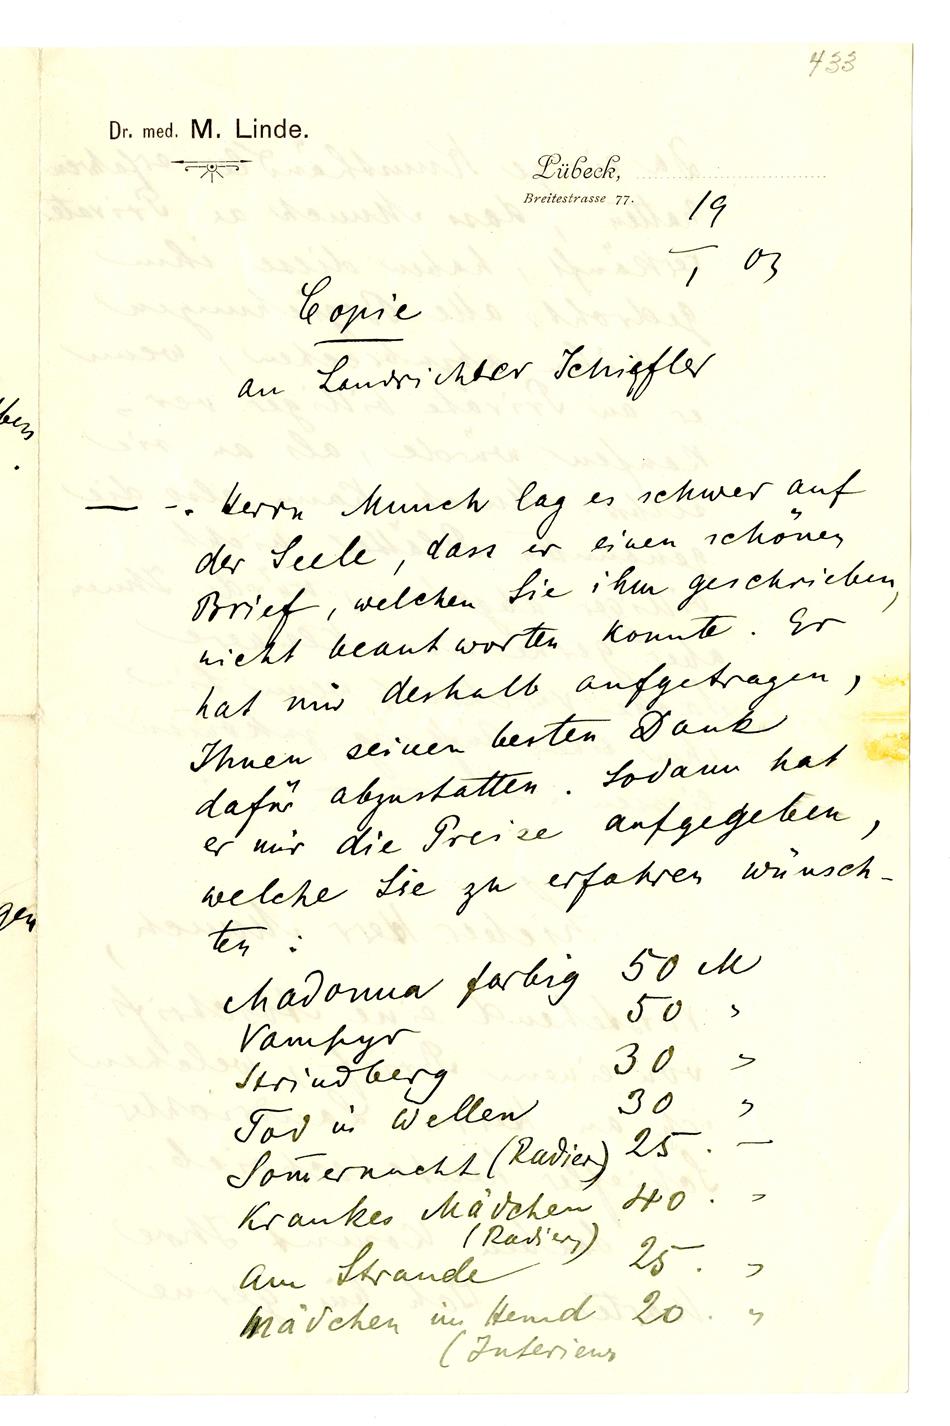 433
Dr. med. M. Linde.
Lübeck,
Breitestrasse 77.
19
I 03
Copie
an Landrichter Schiefler
ben
.
— -. Herrn Munch lag es schwer auf
der Seele, dass er einen schönen
Brief, welchen Sie ihm geschrieben,
nicht beantworten konnte. Er
hat mir deshalb aufgetragen,
Ihnen seinen besten Dank
dafür abzustatten. Sodann hat
er mir die Preise aufgegeben,
welche Sie zu erfahren wünsch-
ten :
gen
Madonna farbig 50 M
Vampyr 50 "
Strindberg 30 "
Tod in Wellen 30 "
Som̄ernacht (Radier) 25 . —
Krankes Mädchen 40 . "
(Radierg)
Am Strande 25 . "
Mädchen im Hemd 20 . "
(Interieur